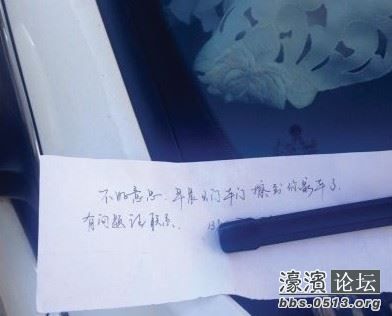 不好意思.早晨出门车门擦到你爱车了.
有问题请联系. 13
濠滨 论坛
bbs.0513.org